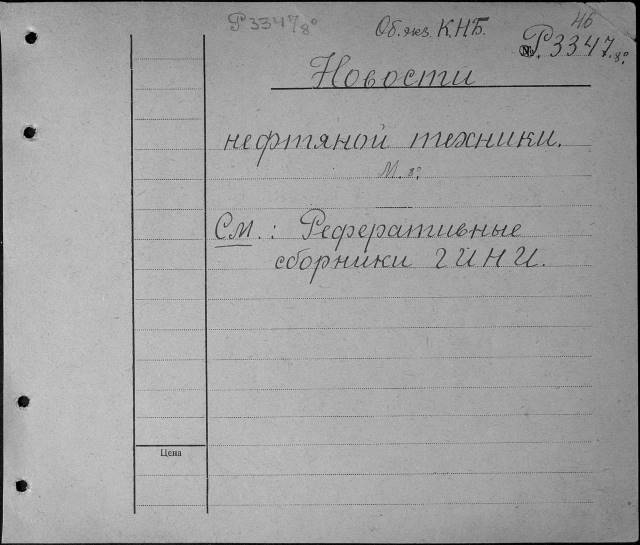 Р3347 8°
Об. экз. К.НБ.
46
№ Р3347. 8°.
Новости
нефтяной техники.
М. 8°.
См.: Реферативные
сборники ГИНИ.
Цена